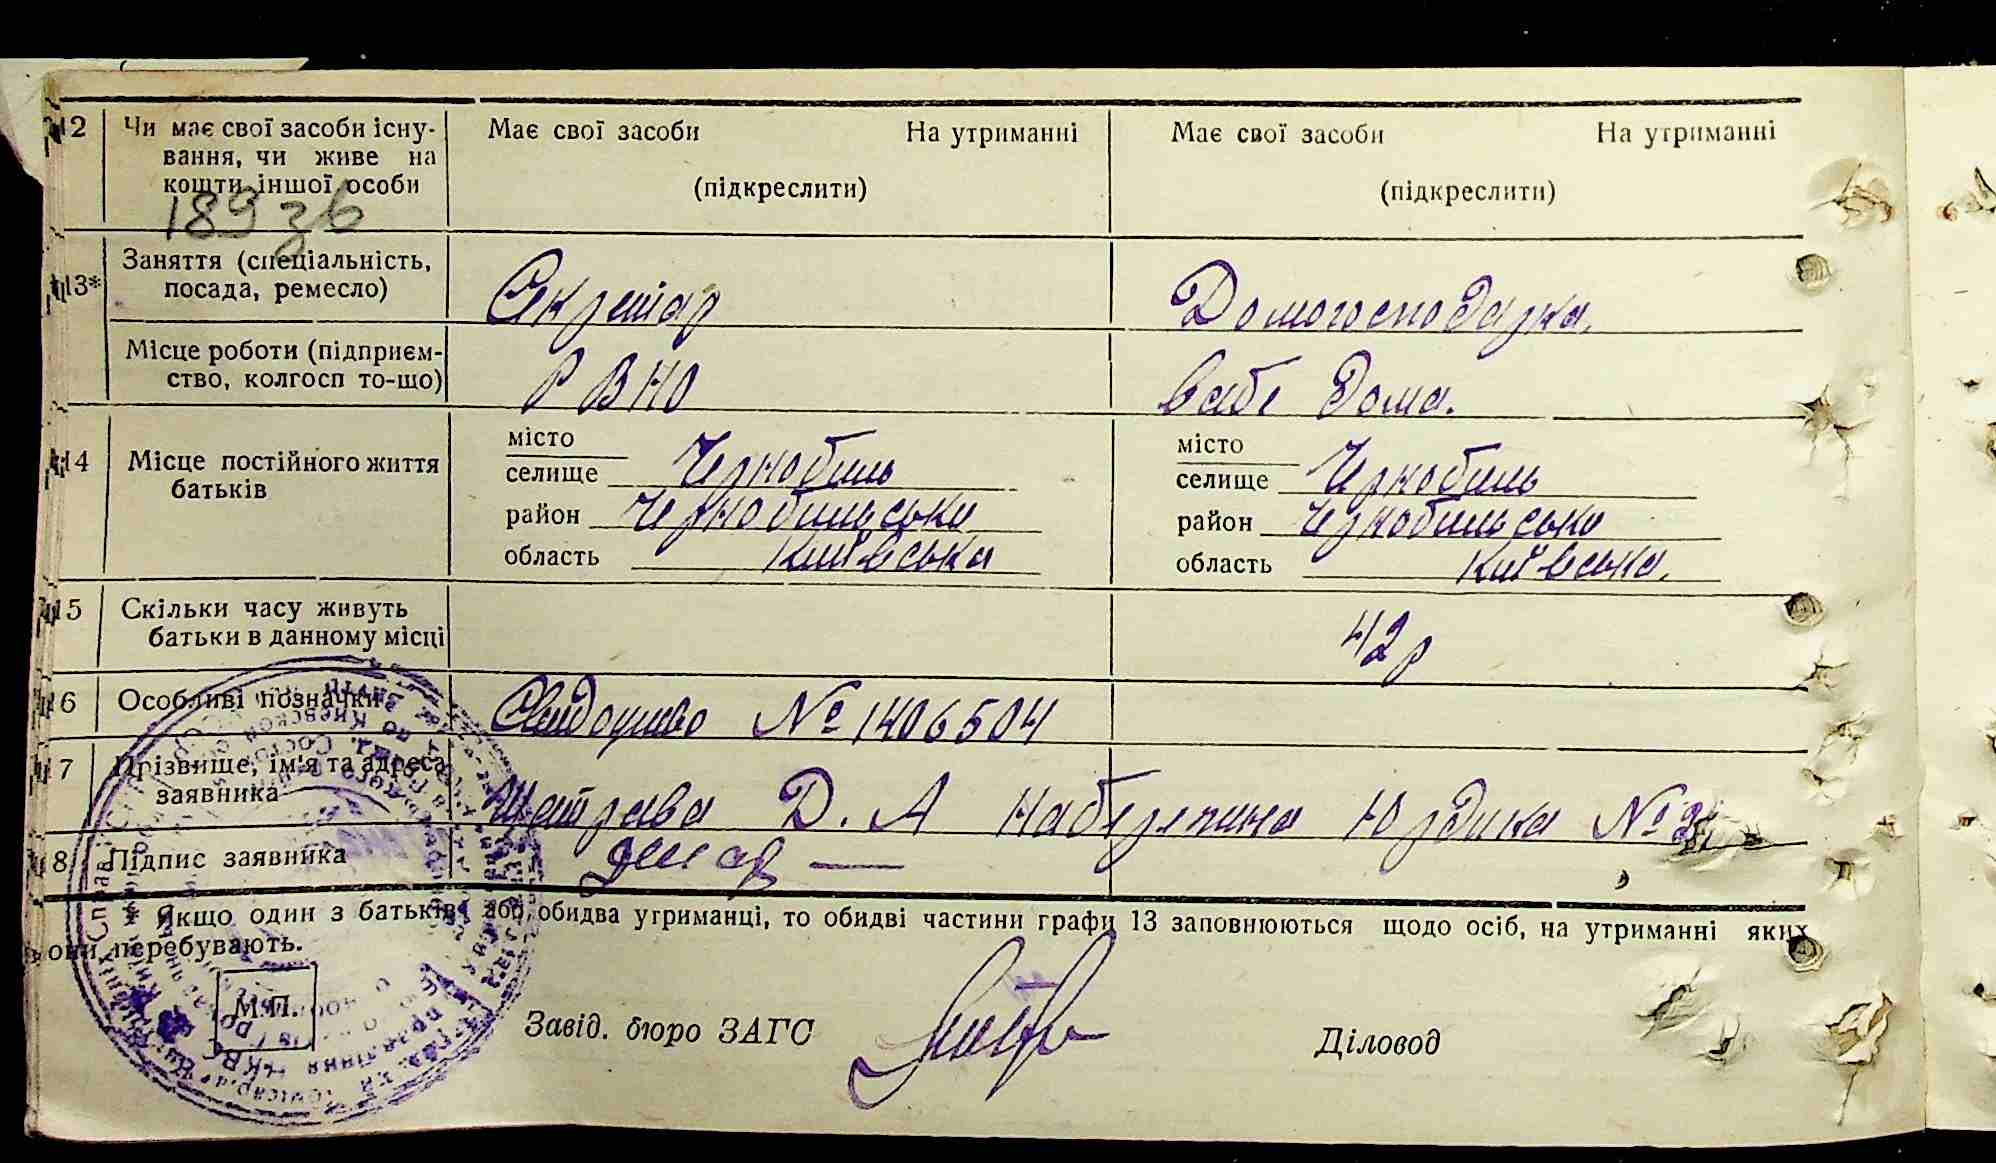 12 Чи має свої засоби існу- Має свої засоби На утриманні Має свої засоби На утриманні
вання, чи живе на
кошти іншої особи (підкреслити) (підкреслити)
189 зв
13* Заняття (спеціальність, Секретар Домогосподарка.
посада, ремесло)
Місце роботи (підприєм- РВНО в себе дома.
ство, колгосп то-що)
14 Місце постійного життя місто місто
батьків селище Чернобиль селище Чернобиль
район Чернобильськи район Чернобильськи
область Київська область Київська.
15 Скільки часу живуть 42 р
батьки в данному місці
16 Особливі позначки Свідоцтво № 1406504
17 Прізвище, ім'я та адреса
заявника Д. А Набережна №
18 Підпис заявника
* Якщо один з батьків, або обидва утриманці, то обидві частини графи 13 заповнюються щодо осіб, на утриманні яких
вони перебувають.
М.П.
Завід. бюро ЗАГС Діловод